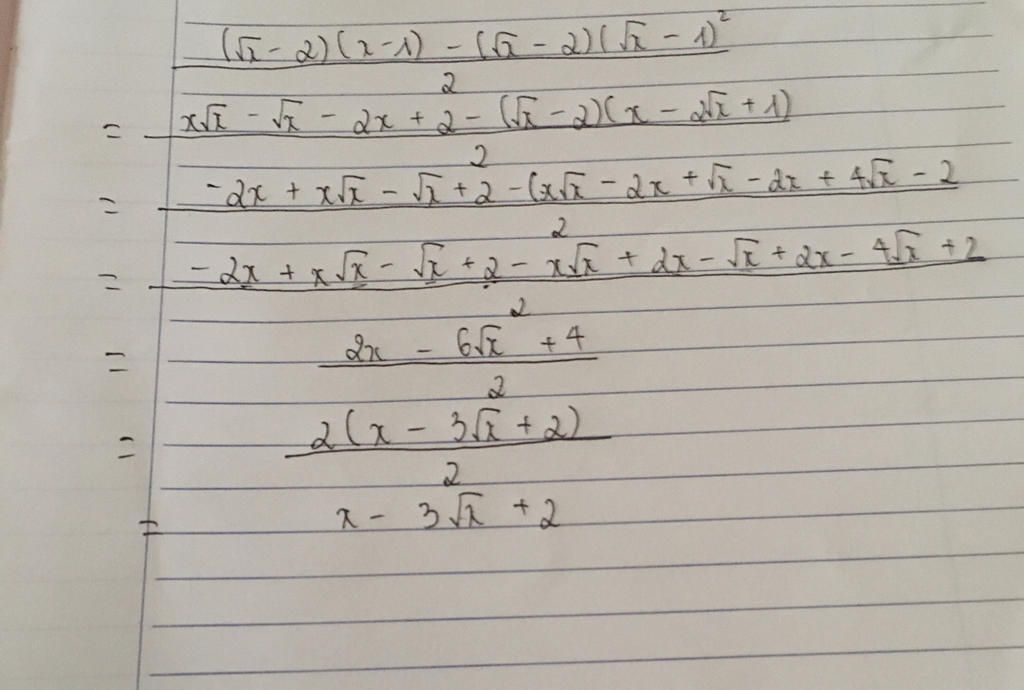 (√x - 2)(x - 1) - (√x - 2)(√x - 1)²
2
= x√x - √x - 2x + 2 - (√x - 2)(x - 2√x + 1)
2
= -2x + x√x - √x + 2 - (x√x - 2x + √x - 2x + 4√x - 2
2
= -2x + x√x - √x + 2 - x√x + 2x - √x + 2x - 4√x + 2
2
= 2x - 6√x + 4
2
= 2(x - 3√x + 2)
2
= x - 3√x + 2